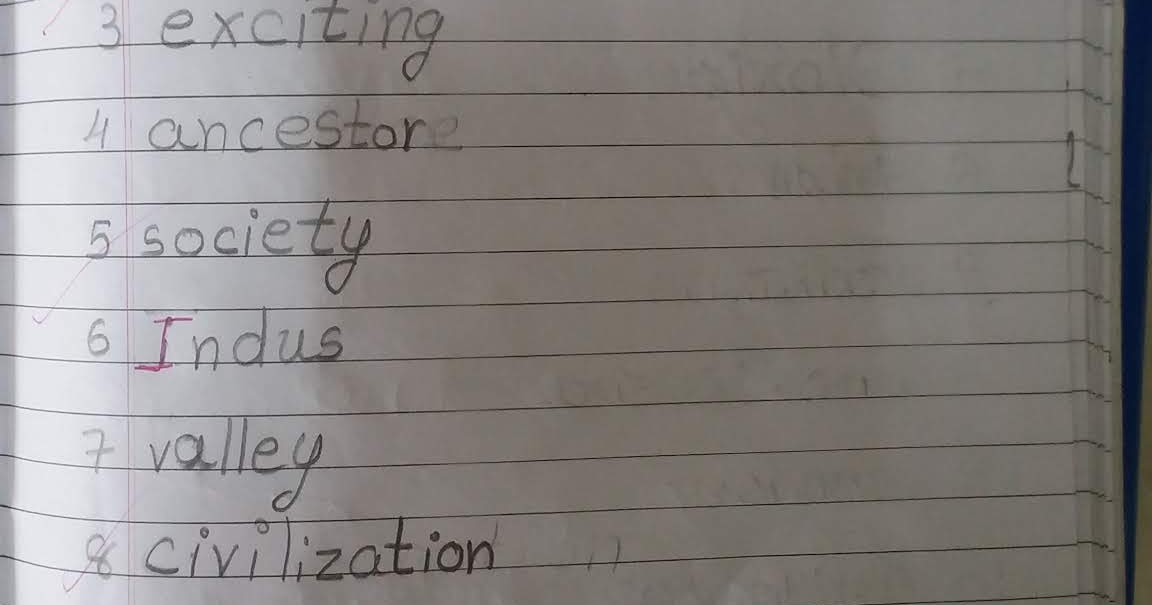 3 exciting
4 ancestor
5 society
6 Indus
7 valley
8 civilization